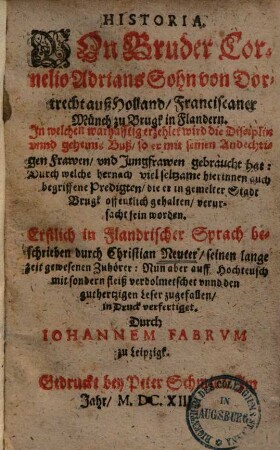 HISTORIA.
VOn Bruder Cor-
nelio Adrians Sohn von Dor-
trecht auß Holland / Franciscaner
Münch zu Brugk in Flandern.
In welchen warhafftig erzehlet wird die Disciplin
vnnd geheime Buß / so er mit seinen Andechti-
gen Frawen / vnd Jungfrawen gebraucht hat:
Durch welche hernach viel seltzame hierinnen auch
begriffene Predigten / die er in gemelter Stadt
Brugk offentlich gehalten / verur-
sacht sein worden.
Erstlich in Flandrischer Sprach be-
schrieben durch Christian Neuter / seinen lange
zeit gewesenen Zuhörer: Nun aber auff Hochteusch
mit sondern fleiß verdolmetschet vnnd den
guthertzigen Leser zugefallen /
in Druck verfertiget.
Durch
IOHANNEM FABRVM
zu Leipzigk.
Gedruckt bey Peter
Jahr / M. DC. XII
IN
AUGSBURG